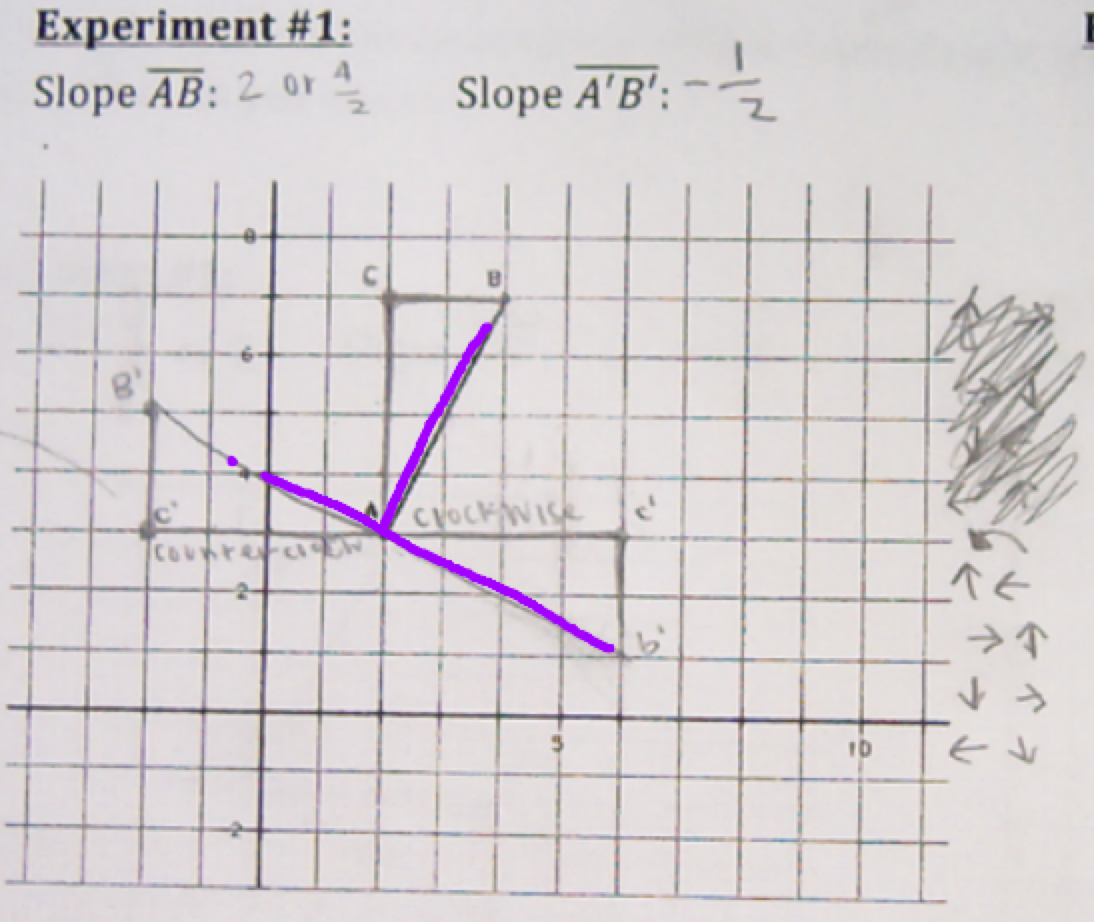 Experiment #1:
Slope AB: 2 or 4/2 Slope A'B': -1/2
8
C B
6
B'
4
C' A clockwise c'
counterclock
2
b'
5 10
-2